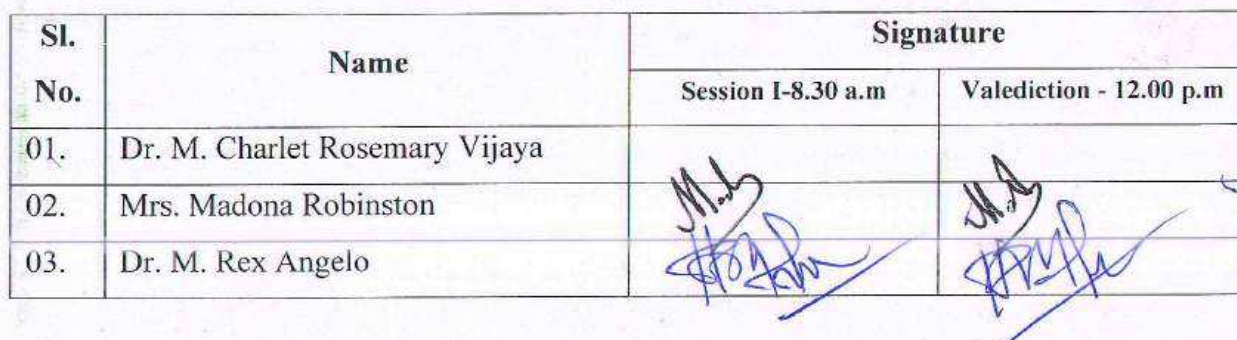 Sl. No. Name Signature
Session I-8.30 a.m Valediction - 12.00 p.m
01. Dr. M. Charlet Rosemary Vijaya
02. Mrs. Madona Robinston
03. Dr. M. Rex Angelo